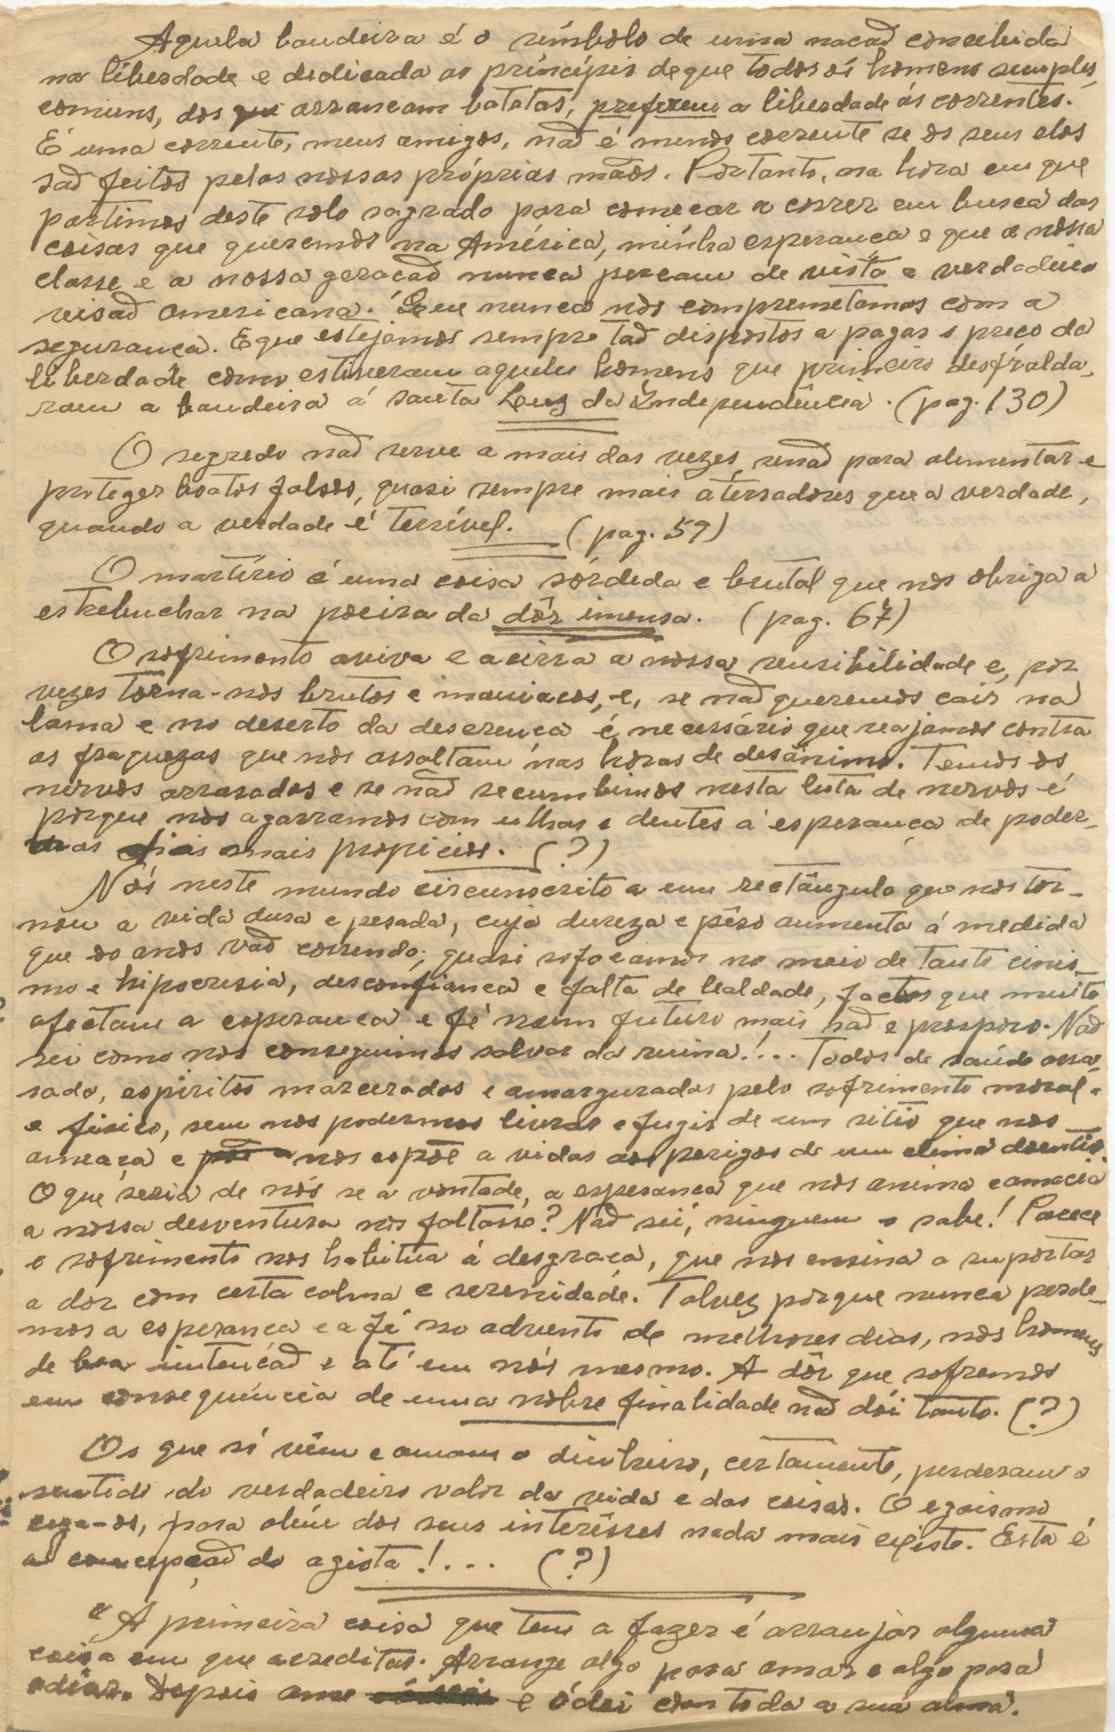 Aquela bandeira é o símbolo de uma nação concebida
na liberdade e dedicada ao princípio de que todos os homens simples,
comuns, dos que arrancam batatas, preferem a liberdade ás correntes.
E uma corrente, meus amigos, não é menos corrente se os seus elos
são feitos pelas nossas próprias mãos. Portanto, na hora em que
partimos deste solo sagrado para começar a correr em busca das
coisas que queremos na América, minha esperança é que a nossa
classe e a nossa geração nunca percam de vista a verdadeira
visão americana. Que nunca nos comprometamos com a
segurança. E que estejamos sempre tão dispostos a pagar o preço da
liberdade como estiveram aqueles homens que primeiro desfralda-
ram a bandeira á santa Luz da Independência. (pag. 130)
O segredo não serve a mais das vezes, senão para alimentar e
proteger boatos falsos, quasi sempre mais aterradores que a verdade,
quando a verdade é terrível. (pag. 59)
O martírio é uma coisa sórdida e brutal que nos obriga a
estrebuchar na poeira da dôr imensa. (pag. 67)
O sofrimento aviva e acirra a nossa sensibilidade e, por
vezes torna-nos brutos e maniacos, e, se não queremos cair na
lama e no deserto da descrença é necessário que reajamos contra
as fraquezas que nos assaltam nas horas de desânimo. Temos os
nervos arrasados e se não sucumbimos nesta luta de nervos é
porque nos agarramos com unhas e dentes á esperança de poder-
mais propicios. (?)
Nós neste mundo circunscrito a um rectângulo que nos tor-
nou a vida dura e pesada, cuja dureza e pêso aumenta á medida
que os anos vão correndo; quasi sofocamos no meio de tanto cinis-
mo e hipocrisia, desconfiança e falta de lealdade, factos que muito
afectam a esperança e fé num futuro mais são e prospero. Não
sei como nos conseguimos salvar da ruina!... Todos de saúde arra-
sada, espiritos macerados e amargurados pelo sofrimento moral
e fisico, sem nos podermos livrar e fugir de um sitio que nos
ameaça e nos expõe a vidas aos perigos de um clima doentio.
O que seria de nós se a vontade, a esperança que nos anima e amacia
a nossa desventura nos faltasse? Não sei, ninguem o sabe! Parece
o sofrimento nos habitúa á desgraça, que nos ensina a suportar
a dor com certa calma e serenidade. Talvez porque nunca perde-
mos a esperança e a fé no advento de melhores dias, nos homens
de boa intenção e até em nós mesmo. A dôr que sofremos
em consequência de uma nobre finalidade não dói tanto. (?)
Os que só vêm e amam o dinheiro, certamente, perderam o
sentido do verdadeiro valor da vida e das coisas. O egoismo
cega-os, para além dos seus interêsses nada mais existe. Esta é
a concepção do agiota!... (?)
"A primeira coisa que tem a fazer é arranjar alguma
coisa em que acreditar. Arranje algo para amar e algo para
odiar. Depois ame e ódei com toda a sua alma.